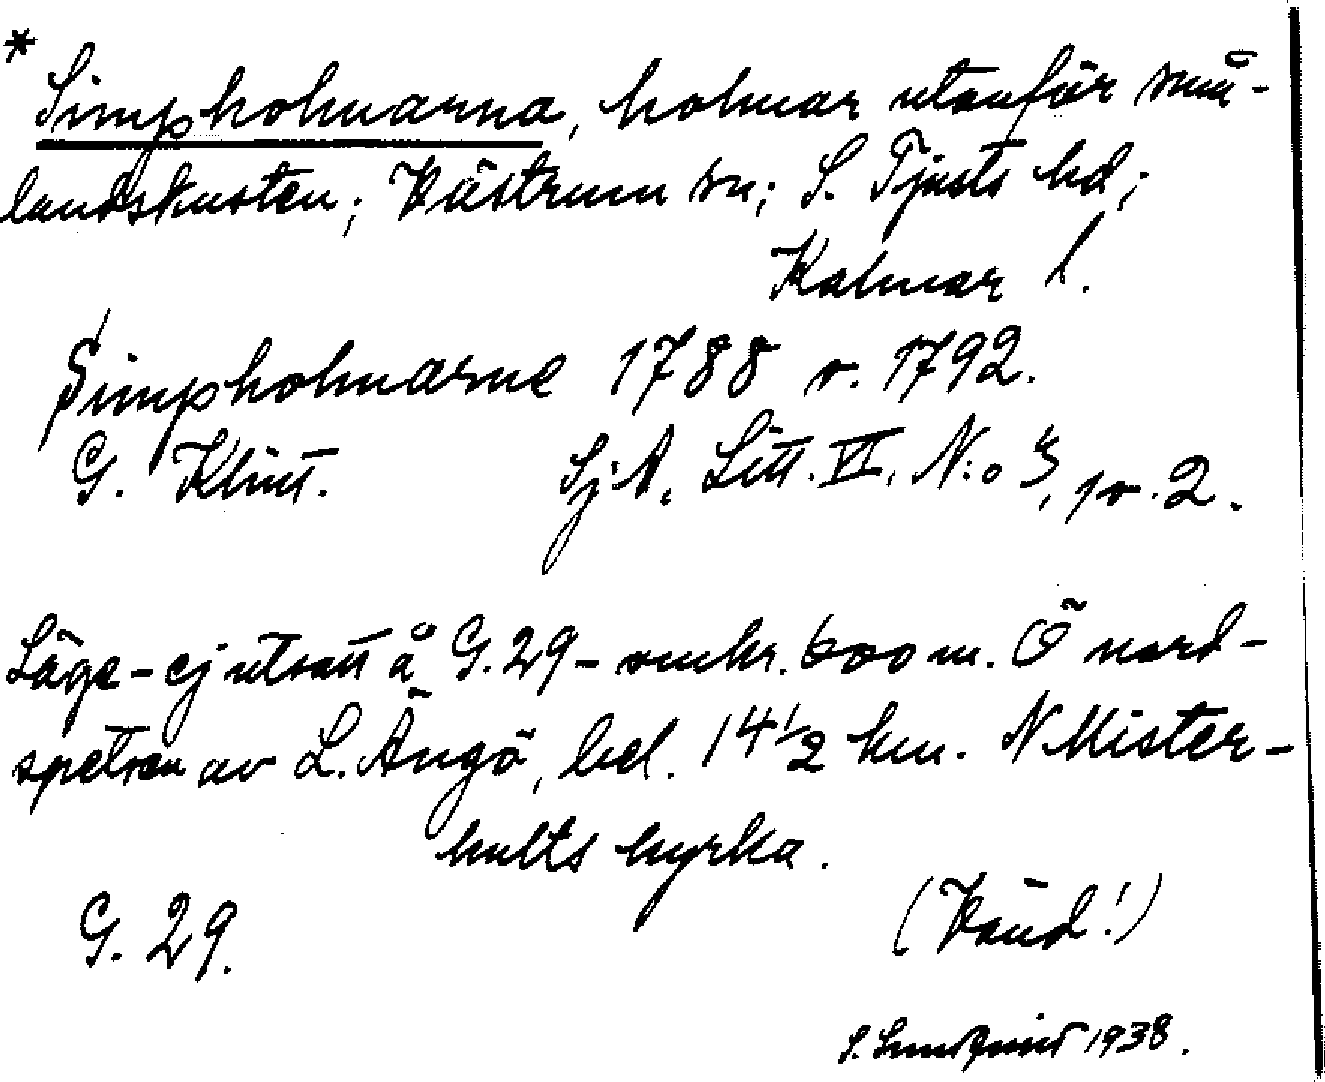 * Simpholmarna, holmar utanför små-
landskusten; Västrum sn; S. Tjusts hd;
Kalmar l.
Simpholmarne 1788 o. 1792.
G. Klint. SjA, Litt. VI. N:o 3, 1 o. 2.
Läge - ej utsatt å G. 29 - omkr. 600 m. Ö nord-
spetsen av L. Ängö, bel. 14 1/2 km. N Mister-
hults kyrka.
G. 29. (Vänd!)
S. Lundqvist 1938.